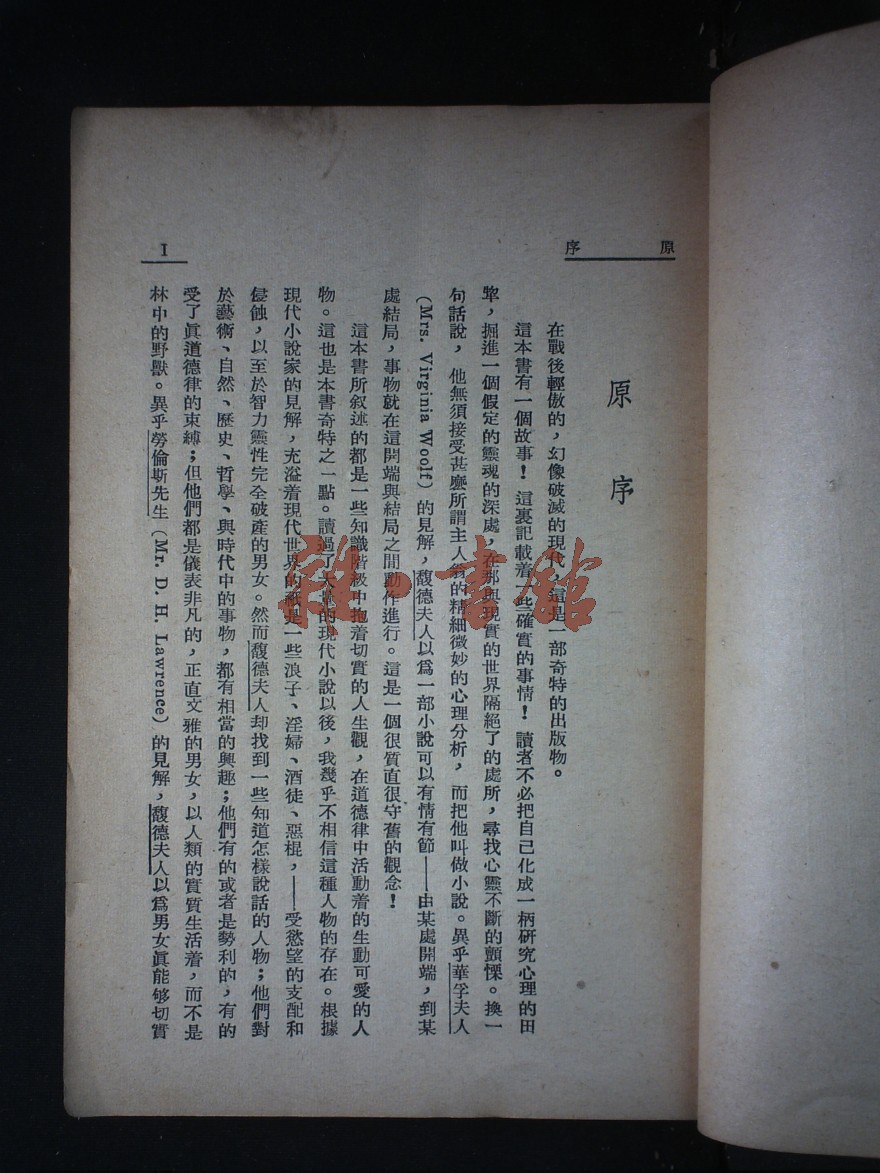 原序
I
原序
在戰後輕傲的，幻像破滅的現代，這是一部奇特的出版物。
這本書有一個故事！這裏記載着一些確實的事情！讀者不必把自己化成一柄研究心理的田
犂，掘進一個假定的靈魂的深處，在那與現實的世界隔絕了的處所，尋找心靈不斷的顫慄。換一
句話說，他無須接受甚麽所謂主人翁的精細微妙的心理分析，而把他叫做小說。異乎華孚夫人
（Mrs. Virginia Woolf）的見解，馥德夫人以爲一部小說可以有情有節——由某處開端，到某
處結局，事物就在這開端與結局之間動作進行。這是一個很質直很守舊的觀念！
這本書所叙述的都是一些知識階級中抱着切實的人生觀，在道德律中活動着的生動可愛的人
物。這也是本書奇特之一點。讀過了大量的現代小說以後，我幾乎不相信這種人物的存在。根據
現代小說家的見解，充溢着現代世界的祇是一些浪子、淫婦、酒徒、惡棍，——受慾望的支配和
侵蝕，以至於智力靈性完全破產的男女。然而馥德夫人却找到一些知道怎樣說話的人物；他們對
於藝術、自然、歷史、哲學、與時代中的事物，都有相當的興趣；他們有的或者是勢利的，有的
受了眞道德律的束縛；但他們都是儀表非凡的，正直文雅的男女，以人類的實質生活着，而不是
林中的野獸。異乎勞倫斯先生（Mr. D. H. Lawrence）的見解，馥德夫人以爲男女眞能够切實
書館